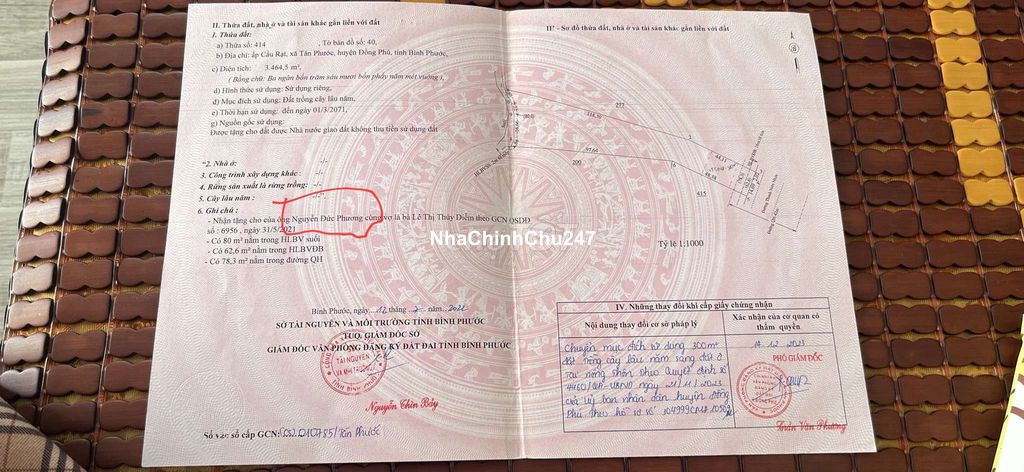 II. Thửa đất, nhà ở và tài sản khác gắn liền với đất
1. Thửa đất:
a) Thửa số: 414 Tờ bản đồ số: 40,
b) Địa chỉ: ấp Cầu Rạt, xã Tân Phước, huyện Đồng Phú, tỉnh Bình Phước,
c) Diện tích: 3.464,5 m²,
( Bằng chữ: Ba ngàn bốn trăm sáu mươi bốn phẩy năm mét vuông ),
d) Hình thức sử dụng: Sử dụng riêng,
đ) Mục đích sử dụng: Đất trồng cây lâu năm,
e) Thời hạn sử dụng: đến ngày 01/3/2071,
g) Nguồn gốc sử dụng:
Được tặng cho đất được Nhà nước giao đất không thu tiền sử dụng đất
"2. Nhà ở: -/-
3. Công trình xây dựng khác : -/-
4. Rừng sản xuất là rừng trồng: -/-
5. Cây lâu năm : -/-
6. Ghi chú :
- Nhận tặng cho của ông Nguyễn Đức Phương cùng vợ là bà Lê Thị Thúy Diễm theo GCN QSDĐ
số : 6956 , ngày 31/5/2021
- Có 80 m² nằm trong HLBV suối
- Có 62,6 m² nằm trong HLBVĐB
- Có 78,3 m² nằm trong đường QH
Bình Phước, ngày 12 tháng 2 năm 2022
SỞ TÀI NGUYÊN VÀ MÔI TRƯỜNG TỈNH BÌNH PHƯỚC
TUQ. GIÁM ĐỐC SỞ
GIÁM ĐỐC VĂN PHÒNG ĐĂNG KÝ ĐẤT ĐAI TỈNH BÌNH PHƯỚC
TÀI NGUYÊN
VÀ MÔI TRƯỜNG
TỈNH BÌNH PHƯỚC
Nguyễn Chín Bảy
Số vào sổ cấp GCN: CS: 010785/Tân Phước
II' - Sơ đồ thửa đất, nhà ở và tài sản khác gắn liền với đất
B
277
116,50
97,64
200
6
44,11
415
Tỷ lệ 1:1000
NhaChinhChu247
IV. Những thay đổi khi cấp giấy chứng nhận
Nội dung thay đổi cơ sở pháp lý
Xác nhận của cơ quan có
thẩm quyền
Chuyển mục đích sử dụng 300m²
đất trồng cây lâu năm sang đất ở
tại nông thôn theo Quyết định số
4460/QĐ-UBND ngày 21/11/2023
của Uỷ ban nhân dân huyện Đồng
Phú theo hồ sơ số
12 2023
PHÓ GIÁM ĐỐC
Trần Văn Phương